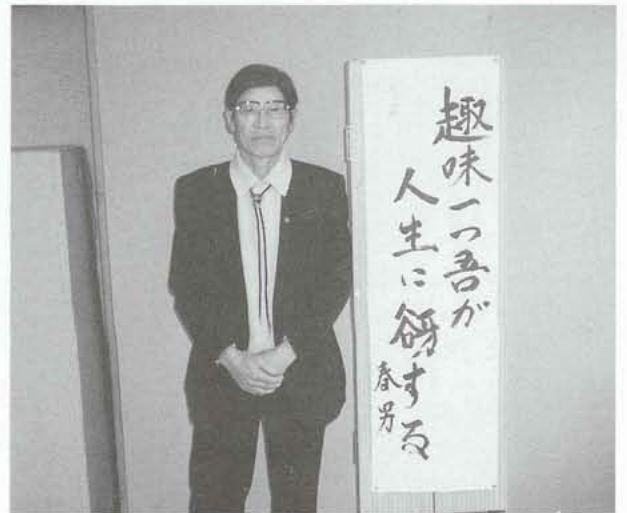 趣味一つ吾が
人生に谺する
春男